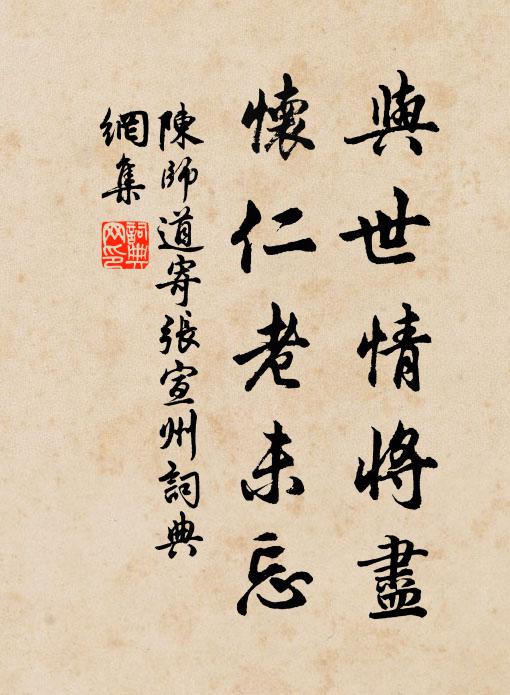 與世情將盡
懷仁老未忘
陳師道寄張宣州詞典
網集
詞典
网印